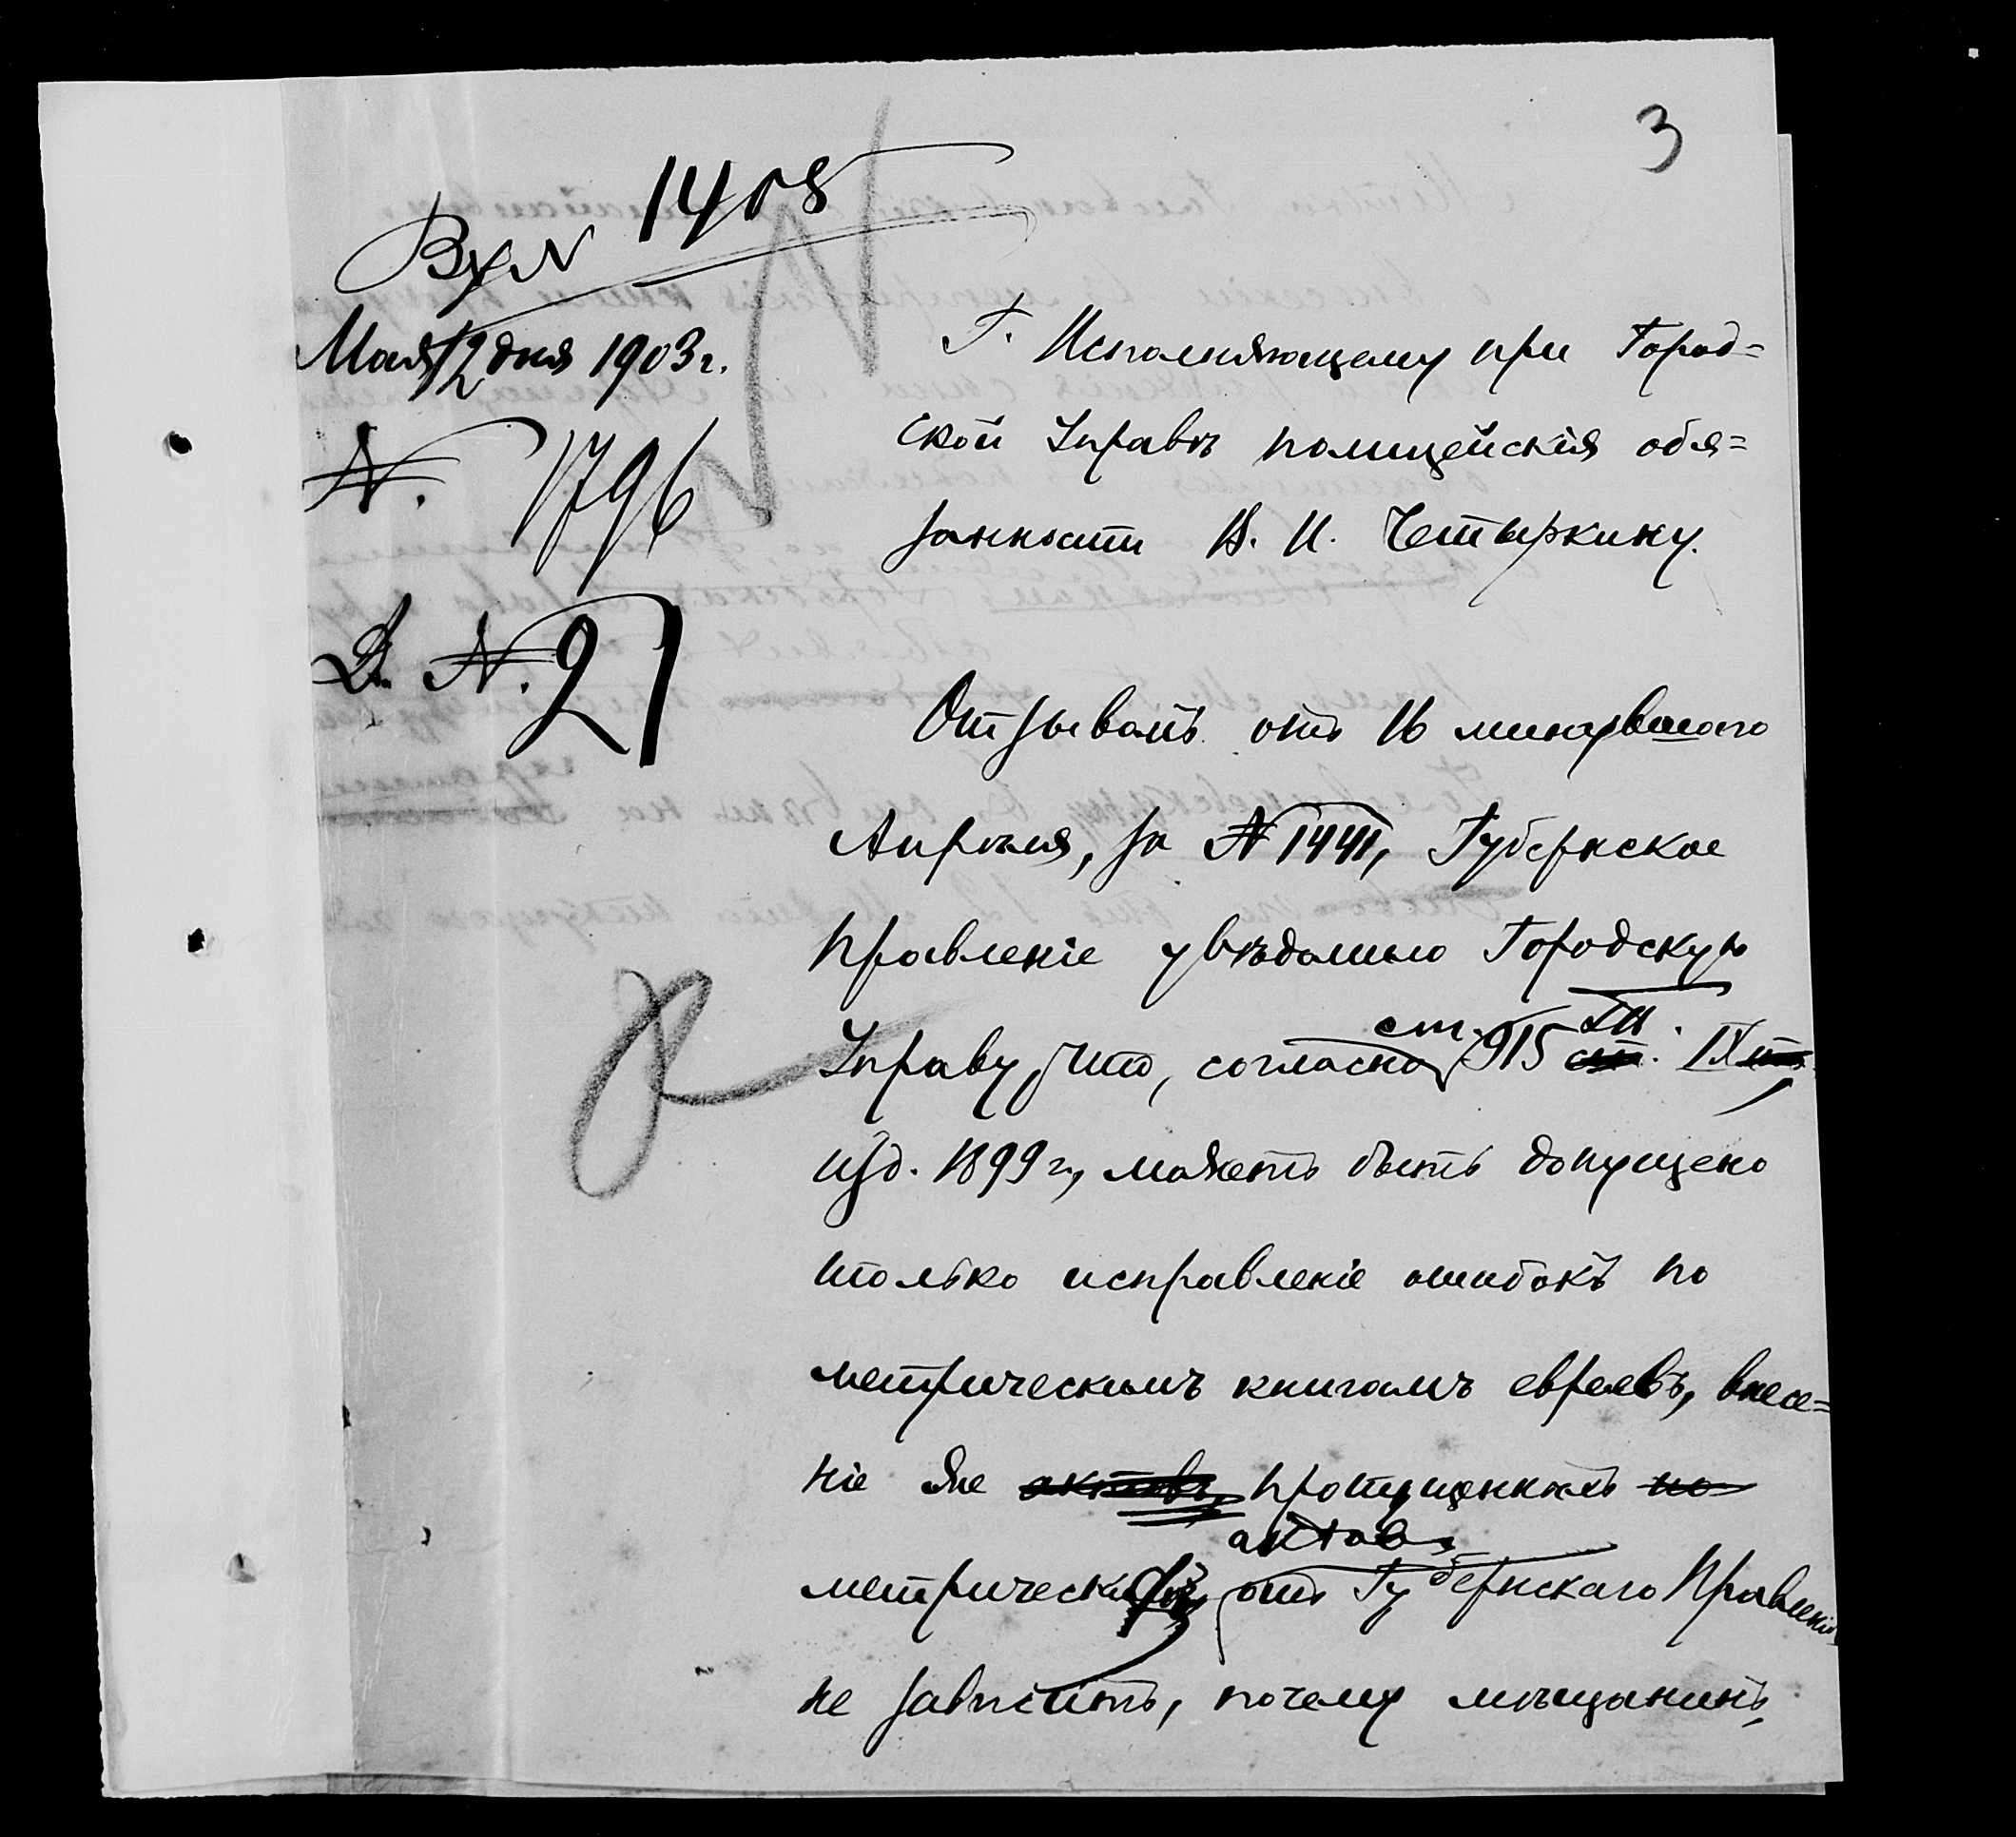 3
Вх N 1408
Мая 12 дня 1903 г.
N. 1796
Д. N. 27
Г. Исполняющему при Город=
ской Управѣ полицейскія обя=
занности В. И. Четыркину.
Отзывомъ отъ 16 минувшаго
Апрѣля, за N 1441, Губернское
Правленіе увѣдомило Городскую
Управу, что, согласно ст. 915 ст. IX т.
изд. 1899 г., можетъ быть допущено
только исправленіе ошибокъ по
метрическимъ книгамъ евреевъ, внесе=
ніе же актовъ пропущенныхъ по
актовъ
метрическихъ отъ Губернскаго Правленія
не зависитъ, почему мѣщанинъ